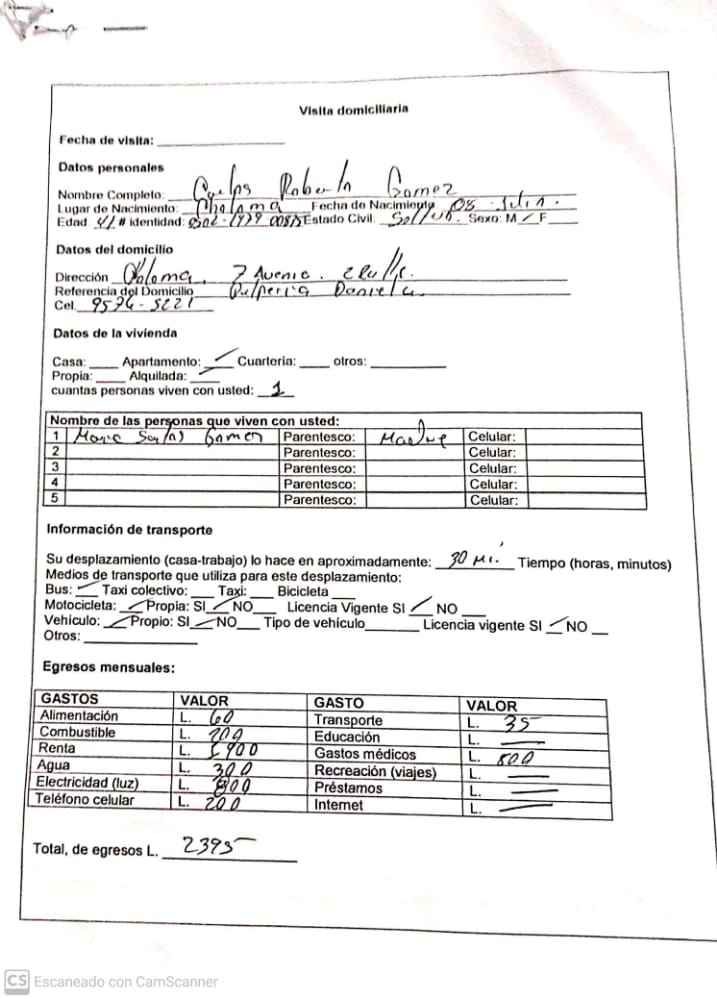 Visita domiciliaria
Fecha de visita: ____________
Datos personales
Nombre Completo: Roberto Gomez
Lugar de Nacimiento: Fecha de Nacimiento 08
Edad 41 # identidad: Estado Civil: Sexo: M ✓ F ___
Datos del domicilio
Dirección 7 Avenie.
Referencia del Domicilio Pulperia Daniela
Cel. 9574-5221
Datos de la vivienda
Casa: ___ Apartamento: ✓ Cuarteria: ___ otros: ______
Propia: ___ Alquilada: ✓
cuantas personas viven con usted: 1
Nombre de las personas que viven con usted:
1 Parentesco: Madre Celular:
2 Parentesco: Celular:
3 Parentesco: Celular:
4 Parentesco: Celular:
5 Parentesco: Celular:
Información de transporte
Su desplazamiento (casa-trabajo) lo hace en aproximadamente: 30 Mi. Tiempo (horas, minutos)
Medios de transporte que utiliza para este desplazamiento:
Bus: ✓ Taxi colectivo: ___ Taxi: ___ Bicicleta ___
Motocicleta: ✓ Propia: SI ✓ NO ___ Licencia Vigente SI ✓ NO ___
Vehículo: ✓ Propio: SI ✓ NO ___ Tipo de vehículo ______ Licencia vigente SI ✓ NO ___
Otros: ____________
Egresos mensuales:
GASTOS VALOR GASTO VALOR
Alimentación L. 60 Transporte L. 35
Combustible L. 200 Educación L. —
Renta L. Gastos médicos L. 500
Agua L. 300 Recreación (viajes) L. —
Electricidad (luz) L. 800 Préstamos L. —
Teléfono celular L. 200 Internet L. —
Total, de egresos L. 2395
CS Escaneado con CamScanner